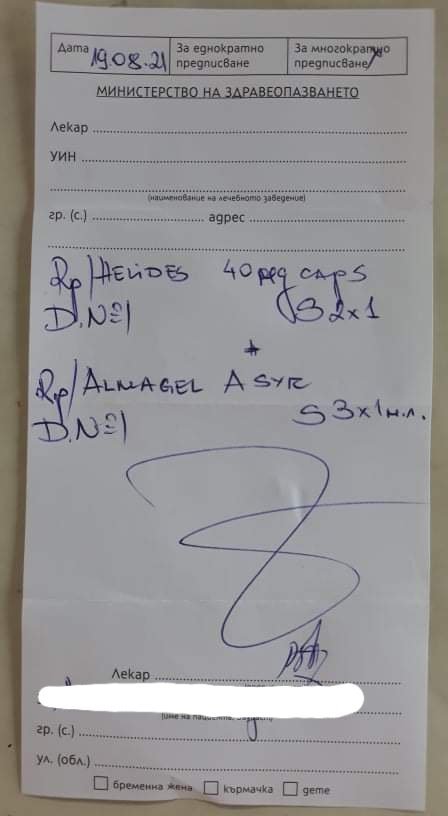 Дата 19.08.21 За еднократно предписване За многократно предписване
МИНИСТЕРСТВО НА ЗДРАВЕОПАЗВАНЕТО
Лекар
УИН
(наименование на лечебното заведение)
гр. (с.) адрес
Rp/HELIDES 40 caps
D.№1 S 2x1
+
Rp/ALMAGEL A SYR
D.№1 S 3x1 м.л.
Лекар
(име на пациента, възраст)
гр. (с.)
ул. (обл.)
бременна жена кърмачка дете